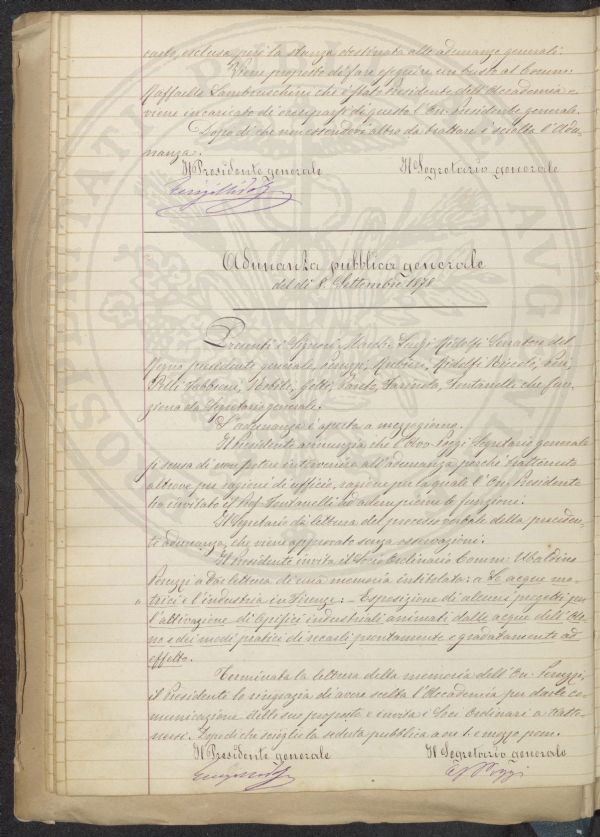 esclusa però la stanza destinata alle adunanze generali.
Viene proposto di fare eseguire un busto al Comm:
Raffaello Lambruschini che è stato Presidente dell'Accademia e
viene incaricato di occuparsi di questo l'On. Presidente generale.
Dopo di che non essendovi altro da trattare è sciolta l'Adu-
nanza.
Il Presidente generale Il Segretario generale
Adunanza pubblica generale
del dì 8. Settembre 1878
Presenti i Signori March: Luigi Ridolfi Senatore del
Regno presidente generale, Peruzzi, Rubieri, Ridolfi Niccolò,
Fabbrini, Nobili, Fontanelli che fun-
ziona da Segretario generale.
L'adunanza è aperta a mezzogiorno.
Il Presidente annunzia che l'Avv. Pozzi Segretario generale
si scusa di non poter intervenire all'adunanza perchè trattenuto
altrove per ragioni di ufficio, ragione per la quale l'On. Presidente
ha invitato il Prof. Fontanelli ad adempierne le funzioni.
Il Segretario dà lettura del processo verbale della preceden-
te adunanza, che viene approvato senza osservazioni.
Il Presidente invita il Socio Ordinario Comm: Ubaldino
Peruzzi a dar lettura di una memoria intitolata: Le acque mo-
trici e l'industria in Firenze: - Esposizione di alcuni progetti per
l'attivazione di Opifici industriali animati dalle acque dell'Ar-
no e dei modi pratici di recarli prontamente e gradatamente ad
effetto.
Terminata la lettura della memoria dell'On. Peruzzi,
il Presidente lo ringrazia di avere scelta l'Accademia per darle co-
municazione delle sue proposte e invita i Soci Ordinari a tratte-
nersi. Dopo di che scioglie la seduta pubblica a ore 1. e mezzo pom.
Il Presidente generale Il Segretario generale
Pozzi